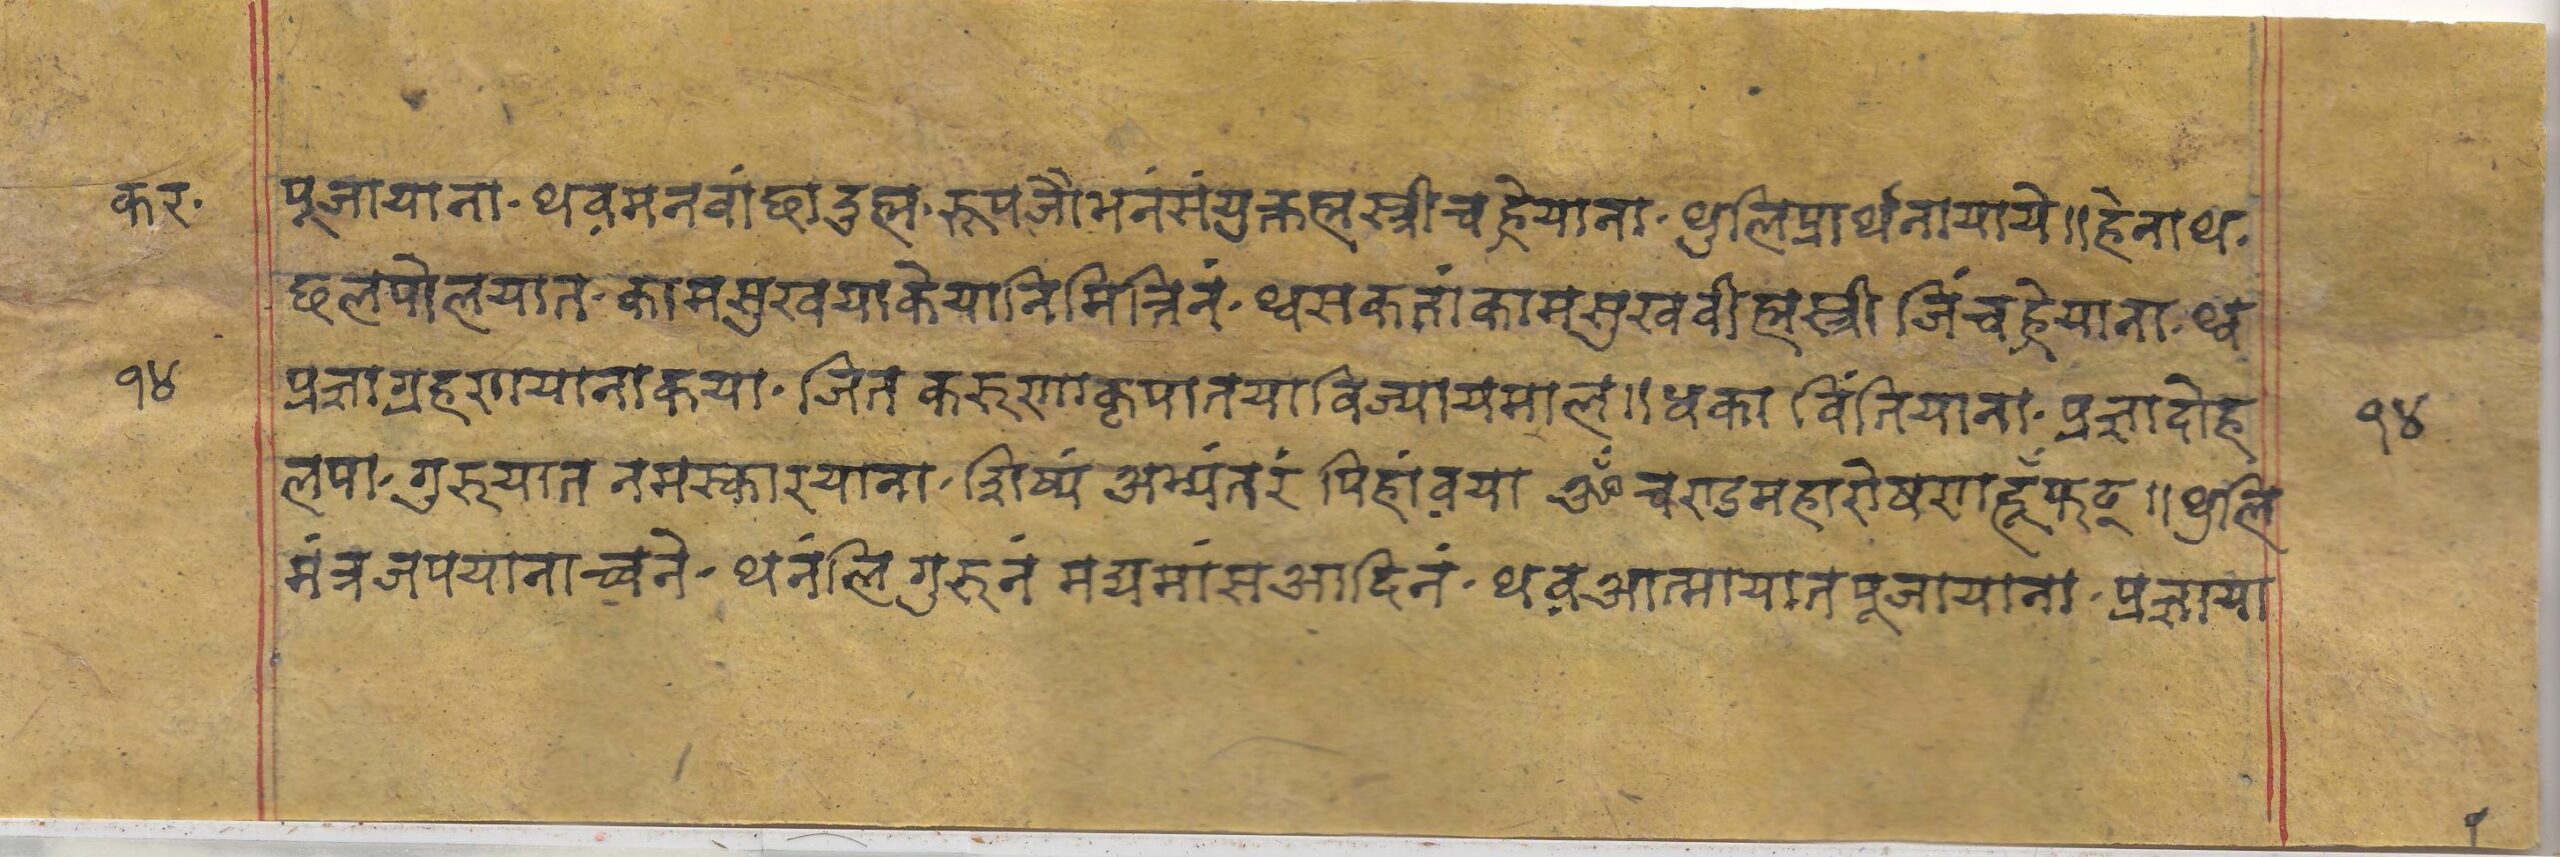 कर॰ पूजायाना॰ थव़मनवांछादुह्म॰ रूपजौभनंसंयुक्तह्मस्त्रीचह्रेयाना॰ थुलिप्रार्थनायाये॥ हेनाथ॰
छलपोलयात॰ कामसुखयाकेयानिमित्तिनं॰ थ्वसकतांकामसुखवीह्मस्त्री जिंचह्रेयाना॰ थ्व
१४ प्रज्ञाग्रहणयानाकया॰ जित करुणाकृपातयाविज्यायमाल॥ धका विंतियाना॰ प्रज्ञादोह १४
लपा॰ गुरुयात नमस्कारयाना॰ शिष्यं अभ्यंतरं पिहांव़या ॐ चण्डमहारोषणहूँफट्॥ थुलिं
मंत्रजपयानाच्वने॰ थनंलि गुरुनं मद्यमांसआदिनं॰ थव़आत्मायातपूजायाना॰ प्रज्ञाया